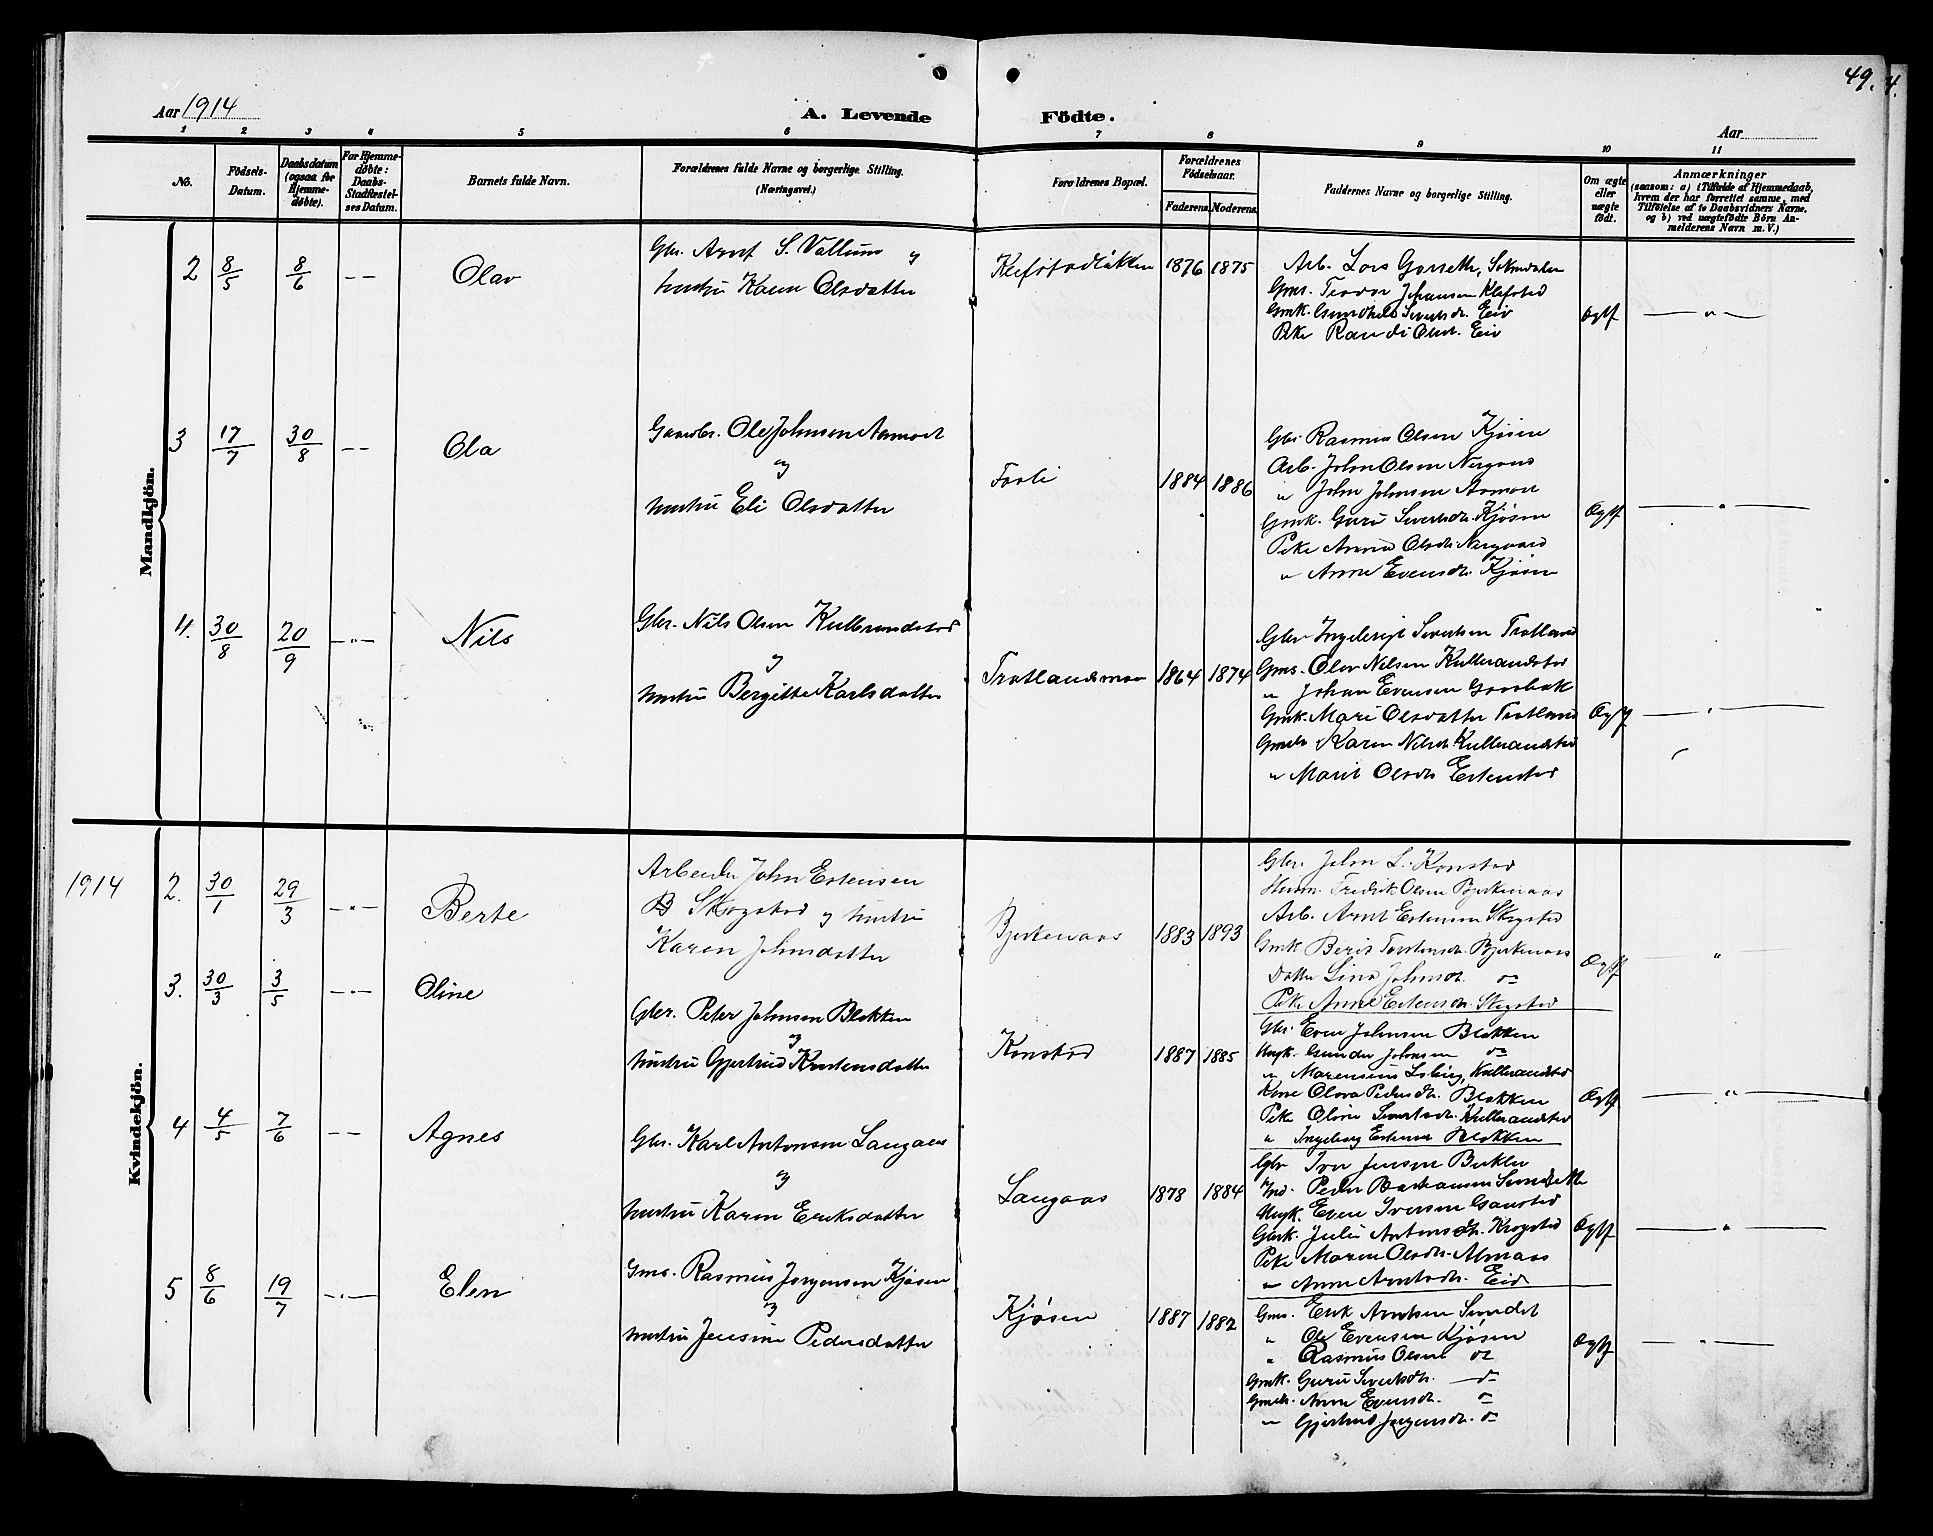 49. 4.
Aar 1914
A. Levende Födte.
Aar
1 2 3 4 5 6 7 8 9 10 11
No.
Födsels-Datum.
Daabsdatum (ogsaa for Hjemmedöbte).
For Hjemmedöbte: Daabs-Stadfæstelses Datum.
Barnets fulde Navn.
Forældrenes fulde Navne og borgerlige Stilling. (Næringsvei.)
Forældrenes Bopæl.
Forældrenes Födselsaar.
Faderens. Moderens.
Faddernes Navne og borgerlige Stilling.
Om ægte eller uægte födt.
Anmærkninger
(saasom: a) i Tilfælde af Hjemmedaab, hvem der har forrettet samme, med Tilföielse af to Daabsvidners Navne, og b) ved uægtefödte Börn Anmelderens Navn m. V.)
Mandkjön.
2 8/5 8/6 — Olav
Gbr. Arnt S. Vallum og
hustru Karen Olsdatter
1876 1875
Arb. Lars
Gms. Teodor Johansen Klefstad
Gmk. Sivertsdr. Eid
Pke Randi Olsdt. Eid
Ægtf
3 17/7 30/8 — Ola
Gaardbr. Ole Johnsen Aamoet
og
hustru Eli Olsdatter
Fosli 1884 1886
Gbr. Rasmus Olsen Kjøsen
Arb. John Olsen Nergaard
" John Johnsen Aamoet
Gmk. Guru Sivertsdr. Kjøsen
Pike Anna Olsdr. Nergaard
" Anne Evensdr. Kjøsen
Ægtf
4. 30/8 20/9 — Nils
Gbr. Nils Olsen Kulbrandstad
og
hustru Bergitte Karlsdatter
Trotlandsmoen 1864 1874
Gbr Ingebrigt Sivertsen Trotland
Gms. Olav Nilsen Kulbrandstad
" Johan Evensen
Gmk. Mari Olsdatter Trotland
Karen Nilsdr. Kulbrandstad
" Marit Olsdr. Estenstad
Ægtf
Kvindekjön.
1914
2. 30/1 29/3 — Berte
Arbeider John Estensen
Skogstad og hustru
Karen Johnsdatter
Bjerkenaas 1883 1893
Gbr. John L. Konstad
Fredrik Olsen Bjerkenaas
Arb. Arnt Estensen Skogstad
Gmk Berit Torstensdr. Bjerkenaas
Datter Lina Johnsdr. do
Pike Anne Estensdr. Skogstad
Ægtf
3. 30/3 3/5 — Oline
Gbr. Peter Johnsen Blokken
og
hustru Gjertrud Karstensdatter
Konstad 1887 1885
Gbr. Even Johnsen Blokken
Ungk. Gunder Johnsen do
Kone Olava Pedersdr. Blokken
Pike Oline Sivertsdr. Kulbrandstad
" Ingeborg Estensd Blokken
Ægtf
4 4/5 7/6 — Agnes
Gbr. Karl Antonsen Langaas
og
hustru Karen Eriksdatter
Langaas 1878 1884
Gbr Iver Jensen
Ungk. Even Iversen
Julie Antonsdr. Krogstad
Pike Maren Olsdr. Almaas
" Anne Arntsdr. Eid
Ægtf
5 8/6 19/7 — Elen
Gms. Rasmus Jørgensen Kjøsen
og
hustru Jensine Pedersdatter
Kjøsen 1887 1882
Gms. Erik Arntsen Sundet
" Ole Evensen Kjøsen
" Rasmus Olsen do
Gmk. Guru Sivertsdr. do
Anne Evensdr. do
" Gjertrud Jørgensdr. do
Ægtf